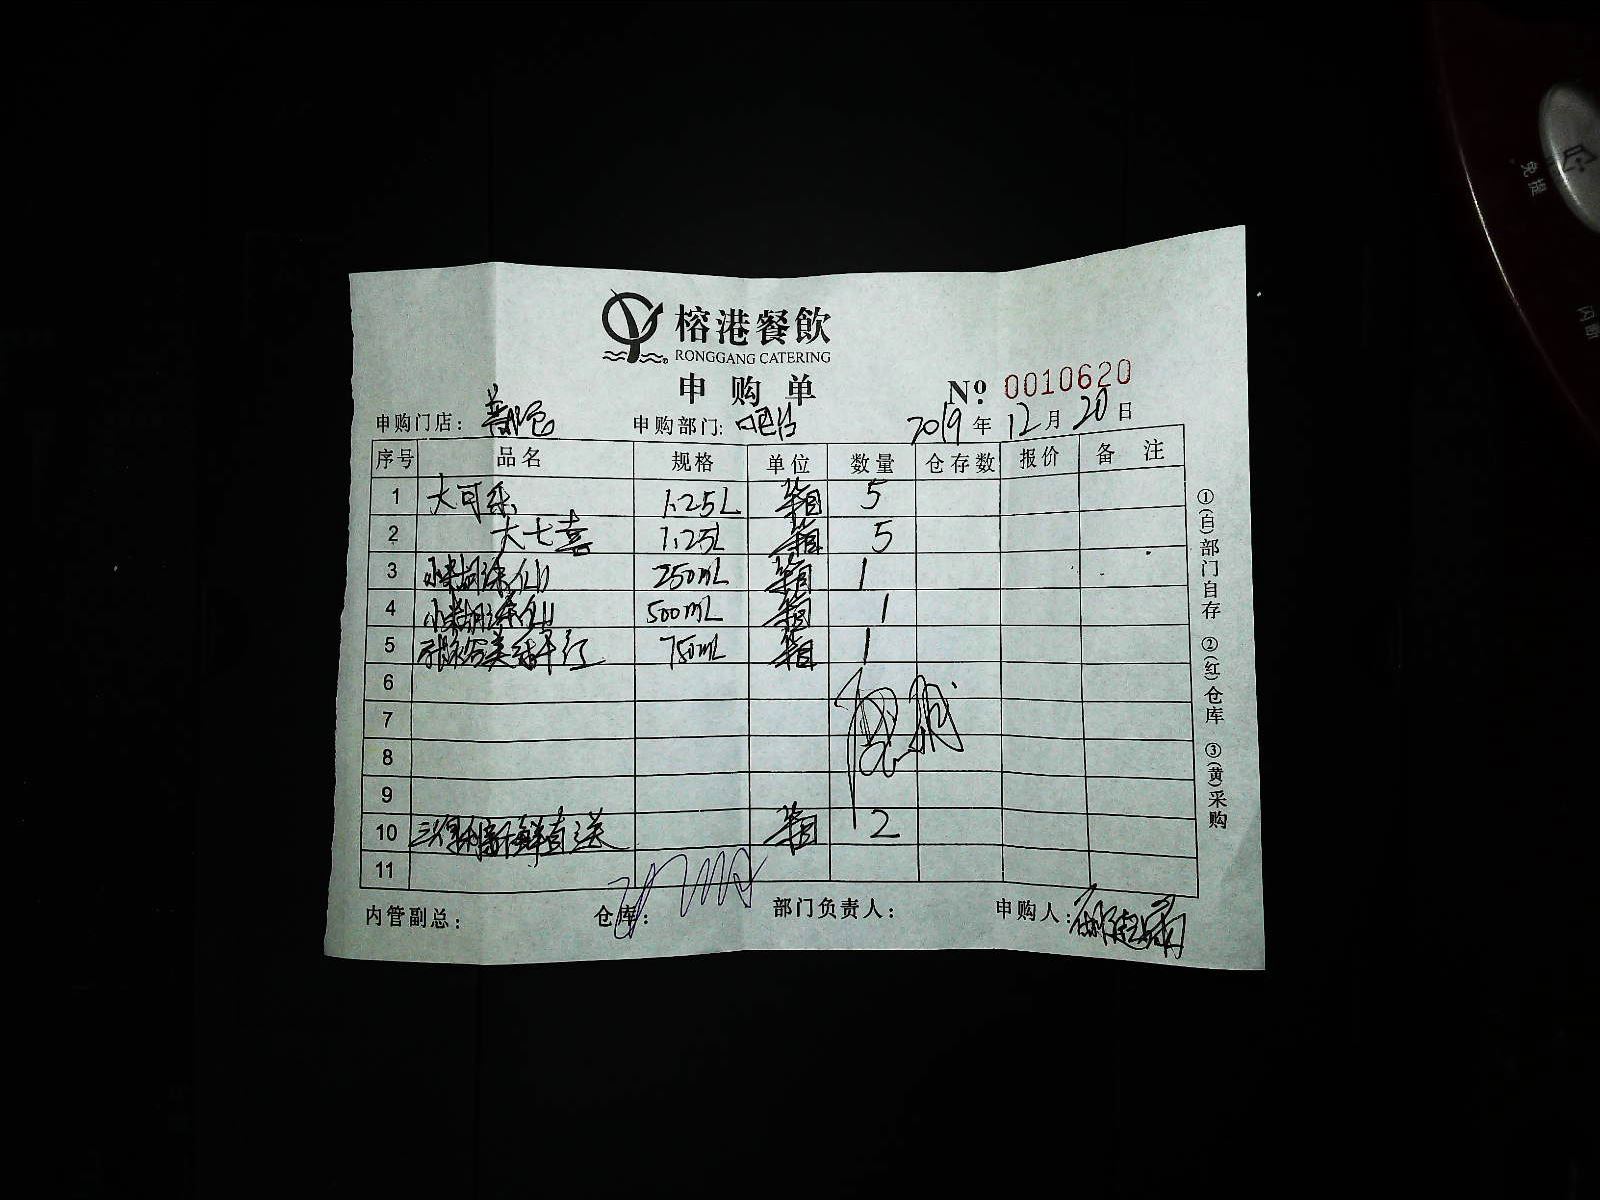 榕港餐飲
RONGGANG CATERING
申购单 №: 0010620
申购门店: 申购部门: 吧台 2019年12月20日
序号 品名 规格 单位 数量 仓存数 报价 备注
1 大可乐 1.25L 箱 5
2 大七喜 1.25L 箱 5
3 小糊涂仙 250mL 箱 1
4 小糊涂仙 500mL 箱 1
5 750mL 箱 1
6
7
8
9
10 三得利新鲜直送 箱 2
11
内管副总: 仓库: 部门负责人: 申购人:
①(白)部门自存 ②(红)仓库 ③(黄)采购
免提
闪断